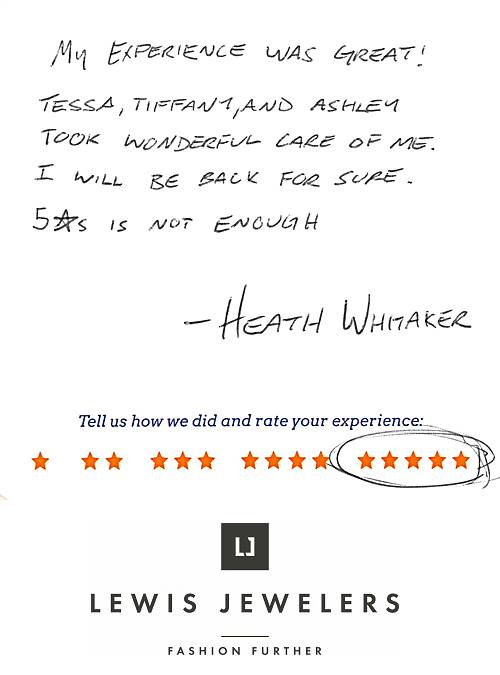 My EXPERIENCE WAS GREAT!
TESSA, TIFFANY, AND ASHLEY
TOOK WONDERFUL CARE OF ME.
I WILL BE BACK FOR SURE.
5☆s IS NOT ENOUGH
– HEATH WHITAKER
Tell us how we did and rate your experience:
★ ★★ ★★★ ★★★★ ★★★★★
LJ
LEWIS JEWELERS
FASHION FURTHER